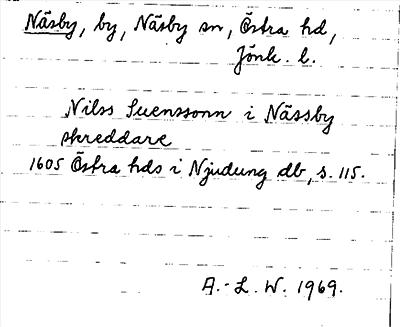 Näsby, by, Näsby sn, Östra hd,
Jönk. l.
Nilss Suenssonn i Nässby
skreddare
1605 Östra hds i Njudung db, s. 115.
A.-L. W. 1969.